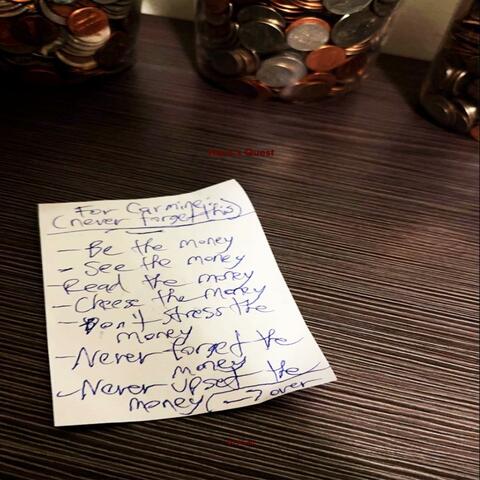 Quest
For Carmine:
(never forget this)
- Be the money
- See the money
- Read the money
- Cheese the money
- Don't stress the
money
- Never forget the
money
- Never upset the
money (→ over